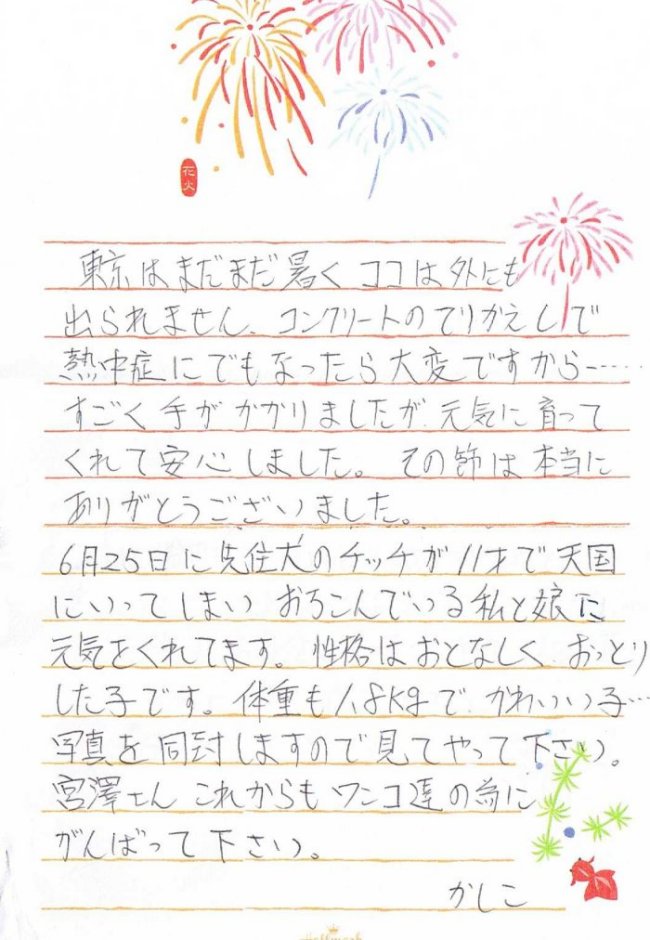 花火
東京はまだまだ暑く ココは外にも
出られません、コンクリートのてりかえしで
熱中症にでもなったら大変ですから……
すごく手がかかりましたが、元気に育って
くれて安心しました。その節は本当に
ありがとうございました。
6月25日に先住犬のチッチが11才で天国
にいってしまい おちこんでいる私と娘に
元気をくれてます。性格はおとなしく、おっとり
した子です。体重も1.8kgで、かわいいい子…
写真を同封しますので見てやって下さい。
宮澤さん これからもワンコ達の為に
がんばって下さい。
かしこ
Hallmark